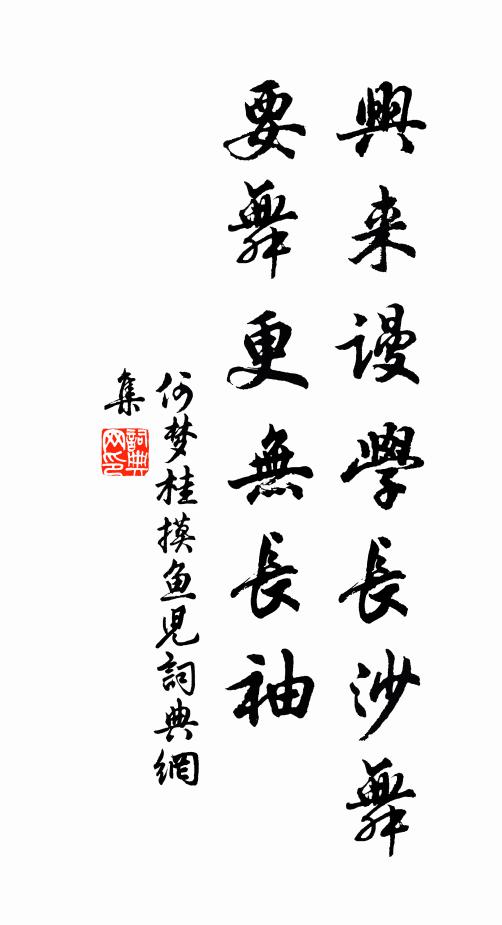 興来谩學長沙舞
要舞更無長袖
何梦桂摸鱼児詞典網
集
詞典
网印